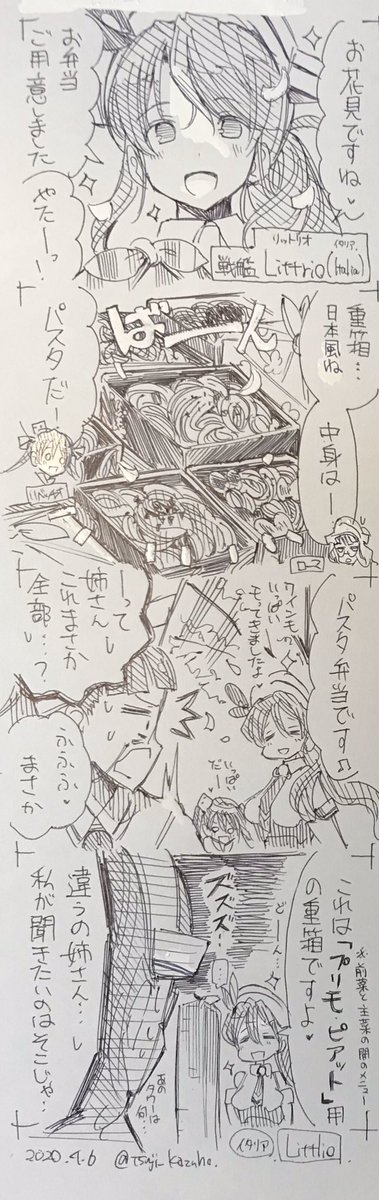 お花見ですね♡
お弁当
ご用意しました
やたーっ！
リットリオ
イタリア
戦艦 Littrio (Italia)
重箱…
日本風ね
中身はー
ばーん
パスタだー
ローマ
パスタ弁当です♫
ワインもっ
いっぱい
モってきましたよ♡
いっぱい
だー
ーって
姉さん
これまさか
全部…？
ふふふ♡
まさか
※前菜と主菜の間のメニュー
これは「プリモ・ピアット」用
の重箱ですよ♡
どーん…
ズズズ…
違うの姉さん…
私が聞きたいのはそこじゃ…
あの
タワーは
何…
イタリア
Littlio
2020.4.6 @tsuji_kazuho.